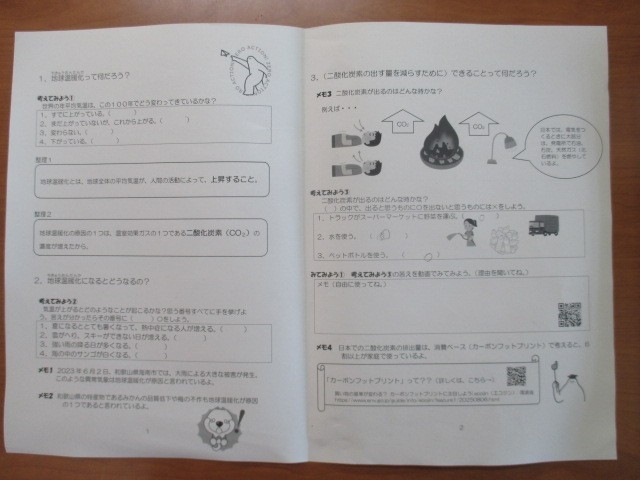 1．地球温暖化って何だろう？
考えてみよう①
世界の年平均気温は、この１００年でどう変わってきているかな？
1．すでに上がっている。（　　）
2．まだ上がっていないが、これから上がる。（　　）
3．変わらない。（　　）
4．下がっている。（　　）
整理１
地球温暖化とは、地球全体の平均気温が、人間の活動によって、上昇すること。
整理２
地球温暖化の原因の１つは、温室効果ガスの１つである二酸化炭素（CO₂）の
濃度が増えたから。
2．地球温暖化になるとどうなるの？
考えてみよう②
気温が上がるとどのようなことが起こるかな？思う番号すべてに手を挙げよ
う。答えが分かったらその番号に（　）○をしよう。
1．夏になるととても暑くなって、熱中症になる人が増える。（　　）
2．雪がへり、スキーができない日が増える。（　　）
3．強い雨の降る日が多くなる。（　　）
4．海の中のサンゴが白くなる。（　　）
メモ１　２０２３年６月２日、和歌山県海南市では、大雨による大きな被害が発生。
このような異常気象は地球温暖化が原因と言われているよ。
メモ２　和歌山県の特産物であるみかんの品質低下や梅の不作も地球温暖化が原因
の１つであると言われているよ。
1
3．（二酸化炭素の出す量を減らすために）できることって何だろう？
メモ３　二酸化炭素が出るのはどんな時かな？
例えば・・・
CO₂
CO₂
日本では、電気をつ
くるときに大部分
は、発電所で石油、
石炭、天然ガス（化
石燃料）を燃やして
いるよ。
考えてみよう３
二酸化炭素が出るのはどんな時かな？
（　）の中で、出ると思うものに○を出ないと思うものには×をしよう。
1．トラックがスーパーマーケットに野菜を運ぶ。（　　）
2．水を使う。（　　）
3．ペットボトルを使う。（　　）
みてみよう①　考えてみよう３の答えを動画でみてみよう。（理由を聞いてね。）
メモ（自由に使ってね。）
メモ４　日本での二酸化炭素の排出量は、消費ベース（カーボンフットプリント）で考えると、６
割以上が家庭で使っているよ。
「カーボンフットプリント」って？？（詳しくは、こちら→）
2